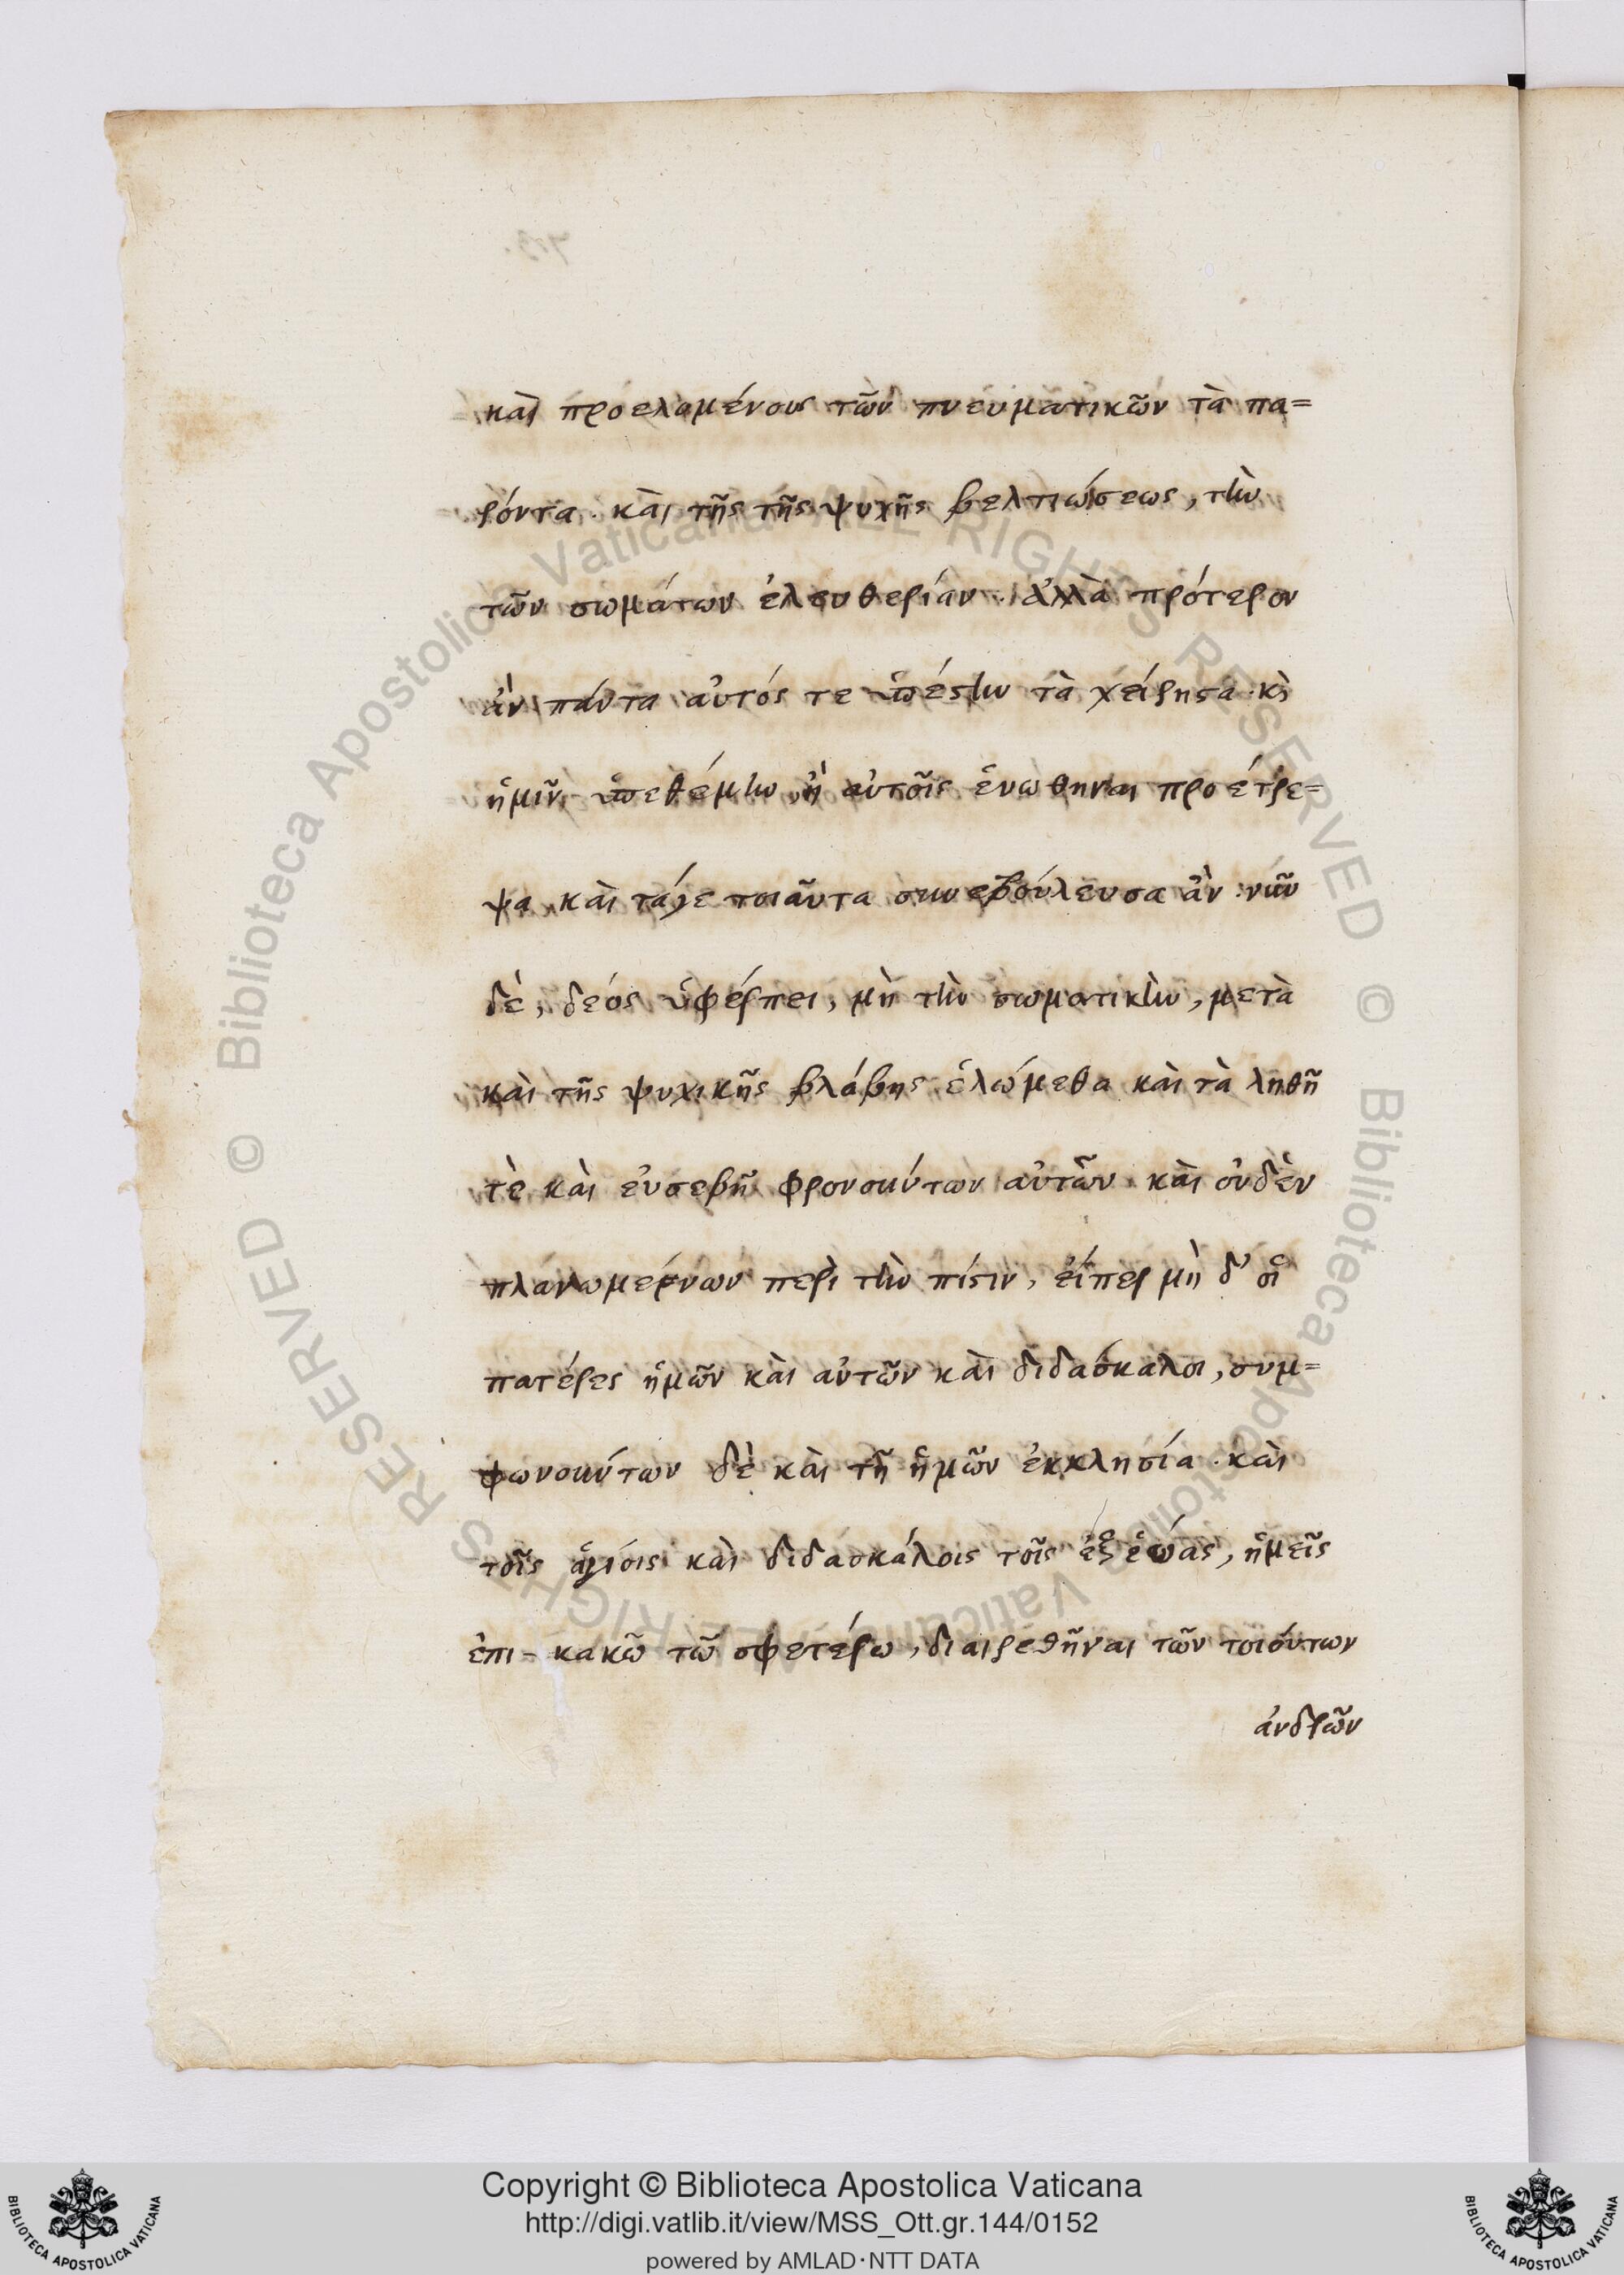 καὶ προελομένους τῶν πνευματικῶν τὰ πα=
ρόντα. καὶ τῆς τῆς ψυχῆς βελτιώσεως, τὴν
τῶν σωμάτων ἐλευθερίαν. ἀλλὰ πρότερον
ἂν πάντα αὐτός τε ὑπέστην τὰ χείριστα. κὶ
ἡμῖν ὑπεθέμην, ἢ αὐτοῖς ἑνωθηναι προέτρε=
ψα καὶ τάγε τοιαῦτα συνεβούλευσα ἂν. νῦν
δὲ, δεός ὑφέρπει, μὴ τὴν σωματικὴν, μετὰ
καὶ τῆς ψυχικῆς βλάβης ἑλώμεθα καὶ τὰ ληθῆ
τὲ καὶ εὐσεβῆ φρονούντων αὐτῶν. καὶ οὐδὲν
πλανωμένων περὶ τὴν πίστιν, εἴπερ μὴ δ' οἱ
πατέρες ἡμῶν καὶ αὐτῶν καὶ διδάσκαλοι, συμ=
φωνούντων δὲ καὶ τῆ ἡμῶν ἐκκλησία. καὶ
τοῖς ἁγίοις καὶ διδασκάλοις τοῖς ἐξ ἑώας, ἡμεῖς
ἐπι- κακῶ τῶ σφετέρω, διαιρεθῆναι τῶν τοιούτων
ἀνδρῶν
Copyright © Biblioteca Apostolica Vaticana
http://digi.vatlib.it/view/MSS_Ott.gr.144/0152
powered by AMLAD·NTT DATA